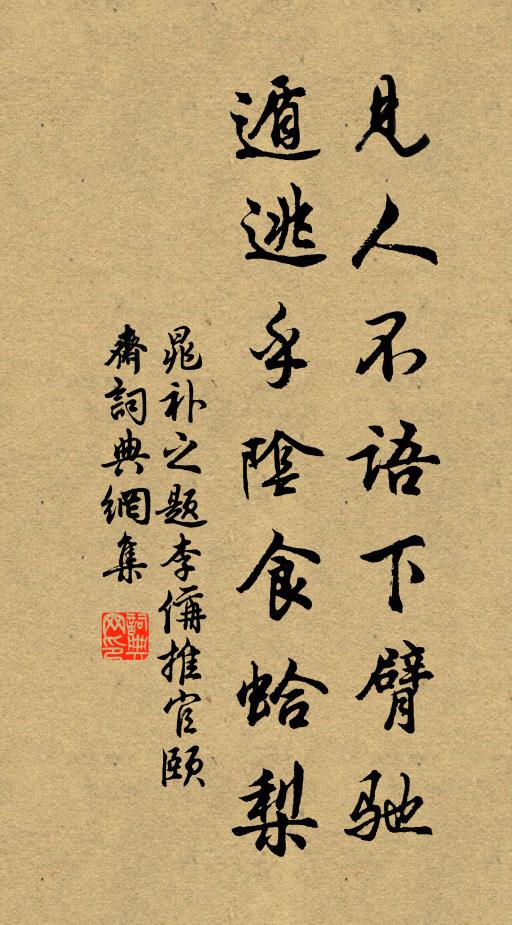 見人不語下臂馳
遁逃乎陰食蛤梨
晁补之题李偁推官颐
齋詞典網集
詞典
网印